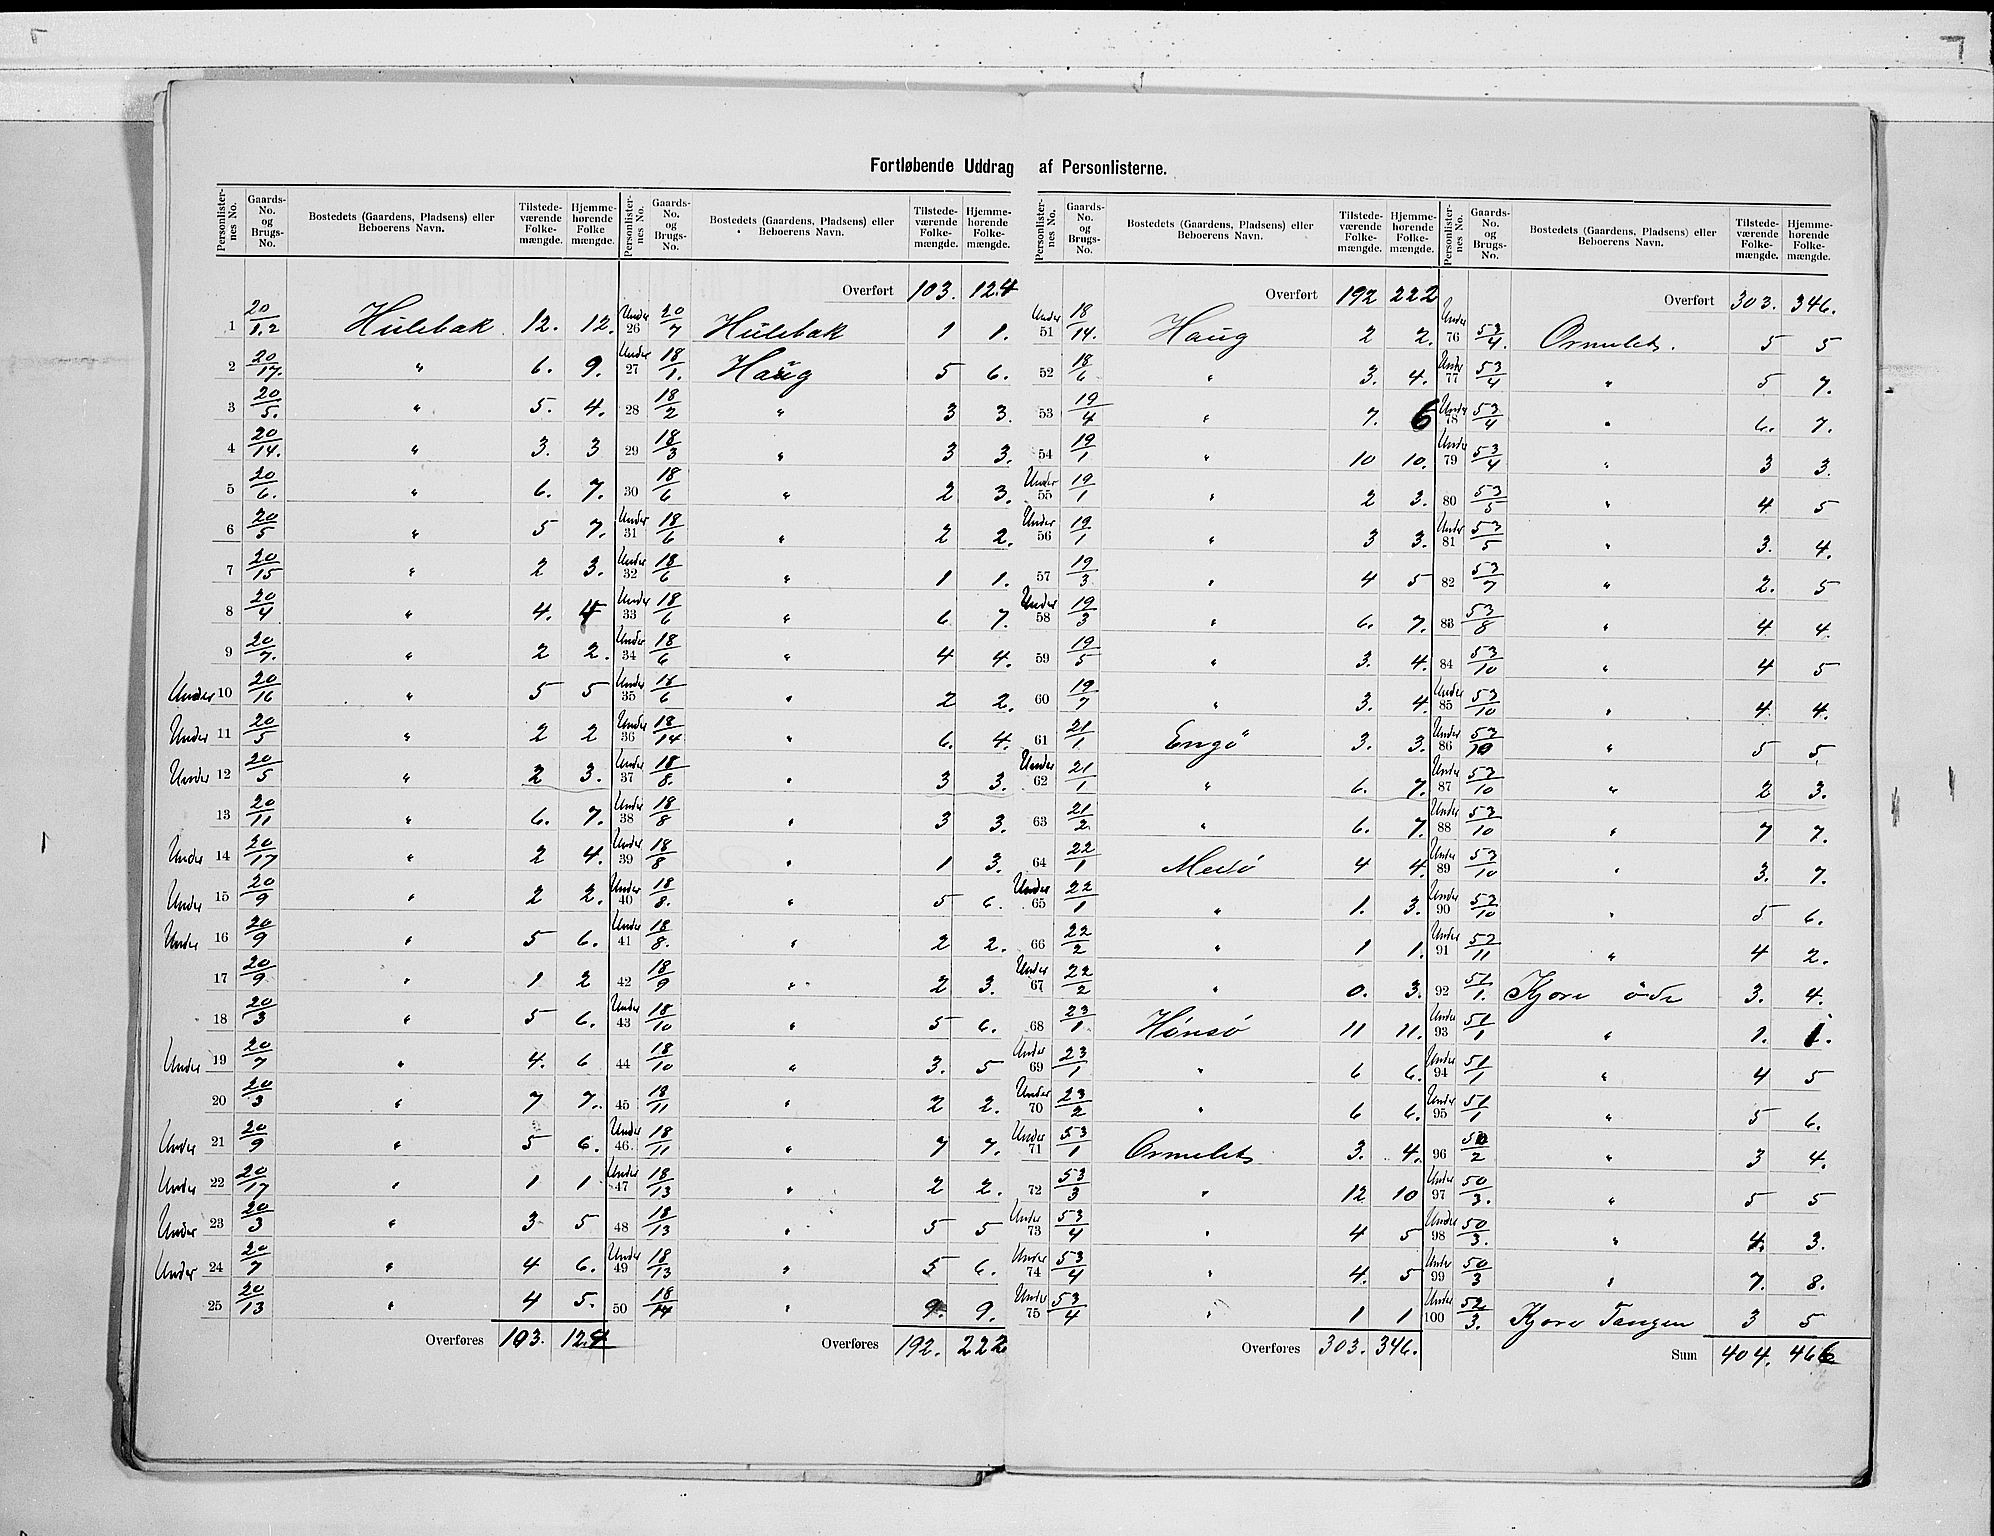 Fortløbende Uddrag af Personlisterne.
Personlisternes No. | Gaards-No. og Brugs-No. | Bostedets (Gaardens, Pladsens) eller Beboerens Navn. | Tilstedeværende Folkemængde. | Hjemmehørende Folkemængde.
1 20/1,2 Hulebak 12. 12.
2 20/17. " 6. 9.
3 20/5. " 5. 4.
4 20/14. " 3. 3
5 20/6. " 6. 7.
6 20/5 " 5 7.
7 20/15 " 2 3.
8 20/4 " 4. 4
9 20/7. " 2 2.
Under 10 20/16 " 5 5
Under 11 20/5 " 2 2
Under 12 20/5 " 2 3.
13 20/11 " 6. 7.
Under 14 20/17 " 2 4.
Under 15 20/9 " 2 2.
Under 16 20/9 " 5 6.
17 20/9 " 1 2
18 20/3 " 5 6.
Under 19 20/7 " 4. 6
20 20/3 " 7 7.
Under 21 20/9 " 5 6.
Under 22 20/17 " 1 1
Under 23 20/3 " 3 5
Under 24 20/7 " 4 6.
25 20/13 " 4 5.
Overføres 103. 124
Personlisternes No. | Gaards-No. og Brugs-No. | Bostedets (Gaardens, Pladsens) eller Beboerens Navn. | Tilstedeværende Folkemængde. | Hjemmehørende Folkemængde.
Overført 103. 124
Under 26 20/7 Hulebak 1 1.
Under 27 18/1. Haug 5 6.
28 18/2 " 3 3.
29 18/3 " 3 3.
30 18/6 " 2 3.
Under 31 18/6 " 2 2.
Under 32 18/6 " 1 1.
Under 33 18/6 " 6 7.
Under 34 18/6 " 4 4.
Under 35 18/6 " 2 2.
Under 36 18/14 " 6. 4.
Under 37 18/8. " 3 3.
Under 38 18/8 " 3 3.
Under 39 18/8 " 1 3.
Under 40 18/8. " 5 6.
Under 41 18/8. " 2 2.
42 18/9 " 2 3.
Under 43 18/10 " 5 6.
44 18/10 " 3. 5
45 18/11 " 2 2.
Under 46. 18/11 " 7 7.
Under 47 18/13 " 2 2.
48 18/13 " 5 5
Under 49 18/13 " 5 6.
50 18/14 " 9. 9.
Overføres 192. 222
Personlisternes No. | Gaards-No. og Brugs-No. | Bostedets (Gaardens, Pladsens) eller Beboerens Navn. | Tilstedeværende Folkemængde. | Hjemmehørende Folkemængde.
Overført 192 222
Under 51 18/14. Haug 2 2.
52 18/6 " 3. 4.
53 19/4 " 7. 6
54 19/1 " 10 10.
Under 55 19/1 " 2 3.
Under 56 19/1 " 3 3.
57 19/3 " 4 5
Under 58 19/3 " 6. 7.
59 19/5 " 3. 4.
60 19/7 " 3. 4.
61 21/1 Engø 3. 3.
Under 62 21/1 " 6. 7.
63 21/2 " 6. 7.
64 22/1 Medø 4 4.
Under 65 22/1 " 1. 3.
66 22/2 " 1 1.
Under 67 22/2 " 0. 3.
68 23/1 Hønsø 11 11.
Under 69 23/1 " 6 6.
Under 70 23/2 " 6 6.
Under 71 53/1 Ormelet 3. 4.
72 53/3 " 12 10
Under 73 53/4 " 4 5
Under 74 53/4 " 4. 5
Under 75 53/4 " 1 1
Overføres 303. 346.
Personlisternes No. | Gaards-No. og Brugs-No. | Bostedets (Gaardens, Pladsens) eller Beboerens Navn. | Tilstedeværende Folkemængde. | Hjemmehørende Folkemængde.
Overført 303. 346.
Under 76 53/4. Ormelet. 5 5
Under 77 53/4 " 5 7.
Under 78 53/4 " 6. 7.
Under 79 53/4 " 3 3.
80 53/5 " 4 5
Under 81 53/5 " 3. 4.
82 53/7 " 2. 5
83 53/8 " 4 4.
84 53/10 " 4 5
Under 85 53/10 " 4 4.
Under 86 53/10 " 5 5.
Under 87 53/10 " 2 3.
Under 88 53/10 " 7 7.
Under 89 53/10 " 3. 7.
Under 90 53/10 " 5 6.
Under 91 53/11 " 4 2.
92 51/1. Kjøre øde 3. 4.
Under 93 51/1 " 1. 1.
Under 94 51/1 " 4 5
Under 95 51/1 " 5 6.
96 50/2 " 3 4.
Under 97 50/3. " 5 5
Under 98 50/3. " 4. 3.
Under 99 50/3 " 7. 8.
Under 100 52/3. Kjøre Tangen 3 5
Sum 404. 466